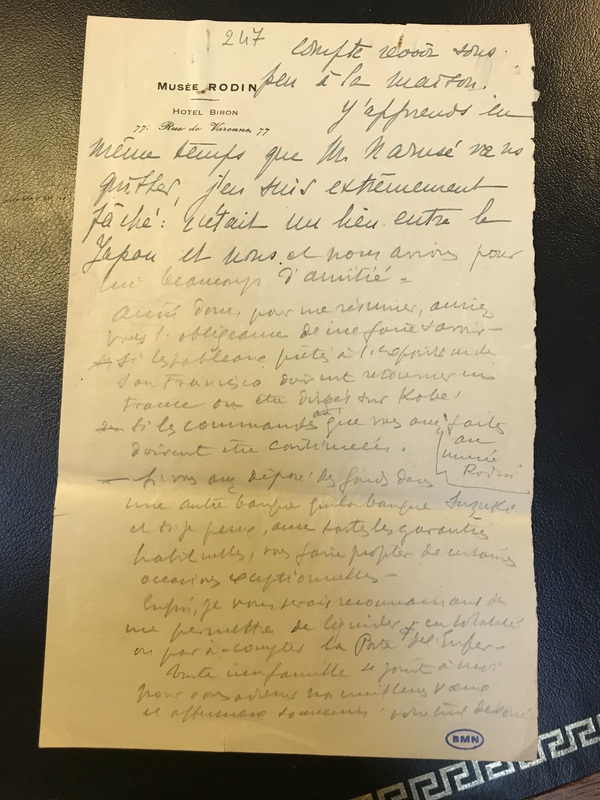 247
compte revoir sous
peu à la maison.
MUSÉE RODIN
HOTEL BIRON
77, Rue de Varenne, 77
J'apprends en
même temps que M. Narusé va nous
quitter, j'en suis extrêmement
fâché : c'était un lien entre le
Japon et nous. et nous avions pour
lui beaucoup d'amitié =
Ainsi donc, pour me résumer, auriez
vous l'obligeance de me faire savoir -
Si les tableaux prêtés à l'exposition de
San Francisco doivent retourner en
France ou être dirigés sur Kobe.
2= Si les commandes que vous avez faites
au
musée
Rodin
doivent être continuées.
- Si vous avez déposé des fonds dans
une autre banque que la banque Suzuki
et si je peux, avec toutes les garanties
habituelles, vous faire profiter de certaines
occasions exceptionnelles -
Enfin, je vous serais reconnaissant de
me permettre de liquider en totalité
ou par à-compter la Porte de l'Enfer -
Toute ma famille se joint à moi
pour vous adresser nos meilleurs vœux
et affectueux souvenirs. votre tout dévoué
BMN